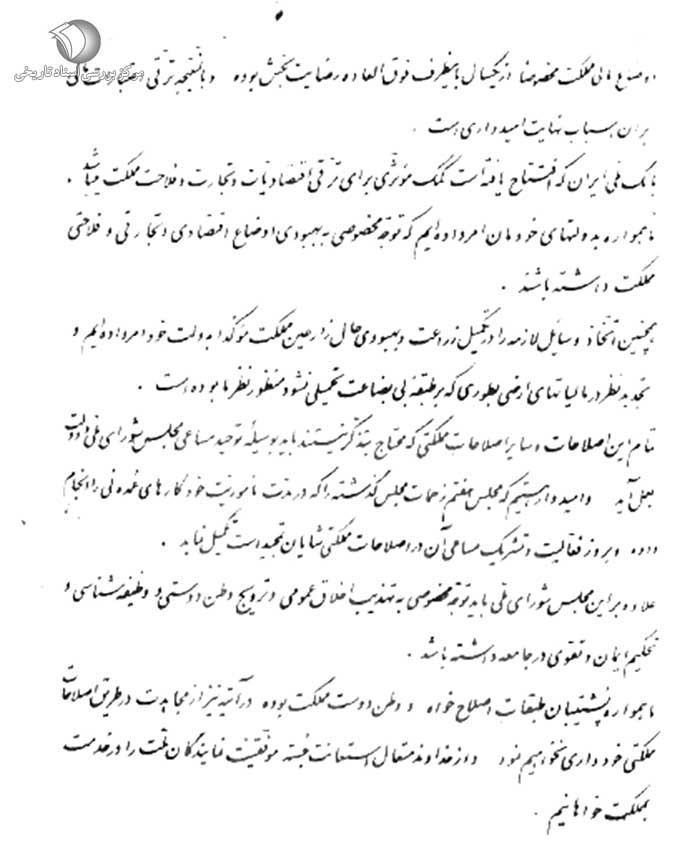 مرکز بررسی اسناد تاریخی
اوضاع مالی مملکت مخصوصا از یکسال باینطرف فوق العاده رضایت بخش بوده و بالنتیجه ترقی
بران اسباب نهایت امیدواری است .
بانک ملی ایران که افتتاح یافته است کمک مؤثری برای ترقی اقتصادیات و تجارت و فلاحت مملکت میباشد .
ما همواره بدولتهای خودمان امر داده ایم که توجه مخصوصی به بهبودی اوضاع اقتصادی و تجارتی و فلاحتی
مملکت داشته باشند .
همچنین اتخاذ وسایل لازمه را در تکمیل زراعت و بهبودی حال زارعین مملکت مؤکدا بدولت خود امر داده ایم و
تجدید نظر در مالیاتهای ارضی بطوری که بر طبقه بی بضاعت تحمیلی نشود منظور نظر ما بوده است .
تمام این اصلاحات و سایر اصلاحات مملکتی که محتاج بتذکر نیستند باید بوسیله توحید مساعی مجلس شورای ملی و دولت
بعمل آید و امیدوار هستیم که مجلس هفتم زحمات مجلس گذشته را که در مدت ماموریت خود کارهای عمده ئی را انجام
داده و بروز فعالیت و تشریک مساعی آن در اصلاحات مملکتی شایان تمجید است تکمیل نماید .
علاوه بر این مجلس شورای ملی باید توجه مخصوصی به تهذیب اخلاق عمومی و ترویج وطن دوستی و وظیفه شناسی و
تحکیم ایمان و تقوی در جامعه داشته باشد .
ما همواره پشتیبان طبقات اصلاح خواه و وطن دوست مملکت بوده در آتیه نیز از مجاهدت در طریق اصلاحات
مملکتی خودداری نخواهیم نمود و از خداوند متعال استعانت جسته موفقیت نمایندگان ملت را در خدمت
بمملکت خواهانیم .